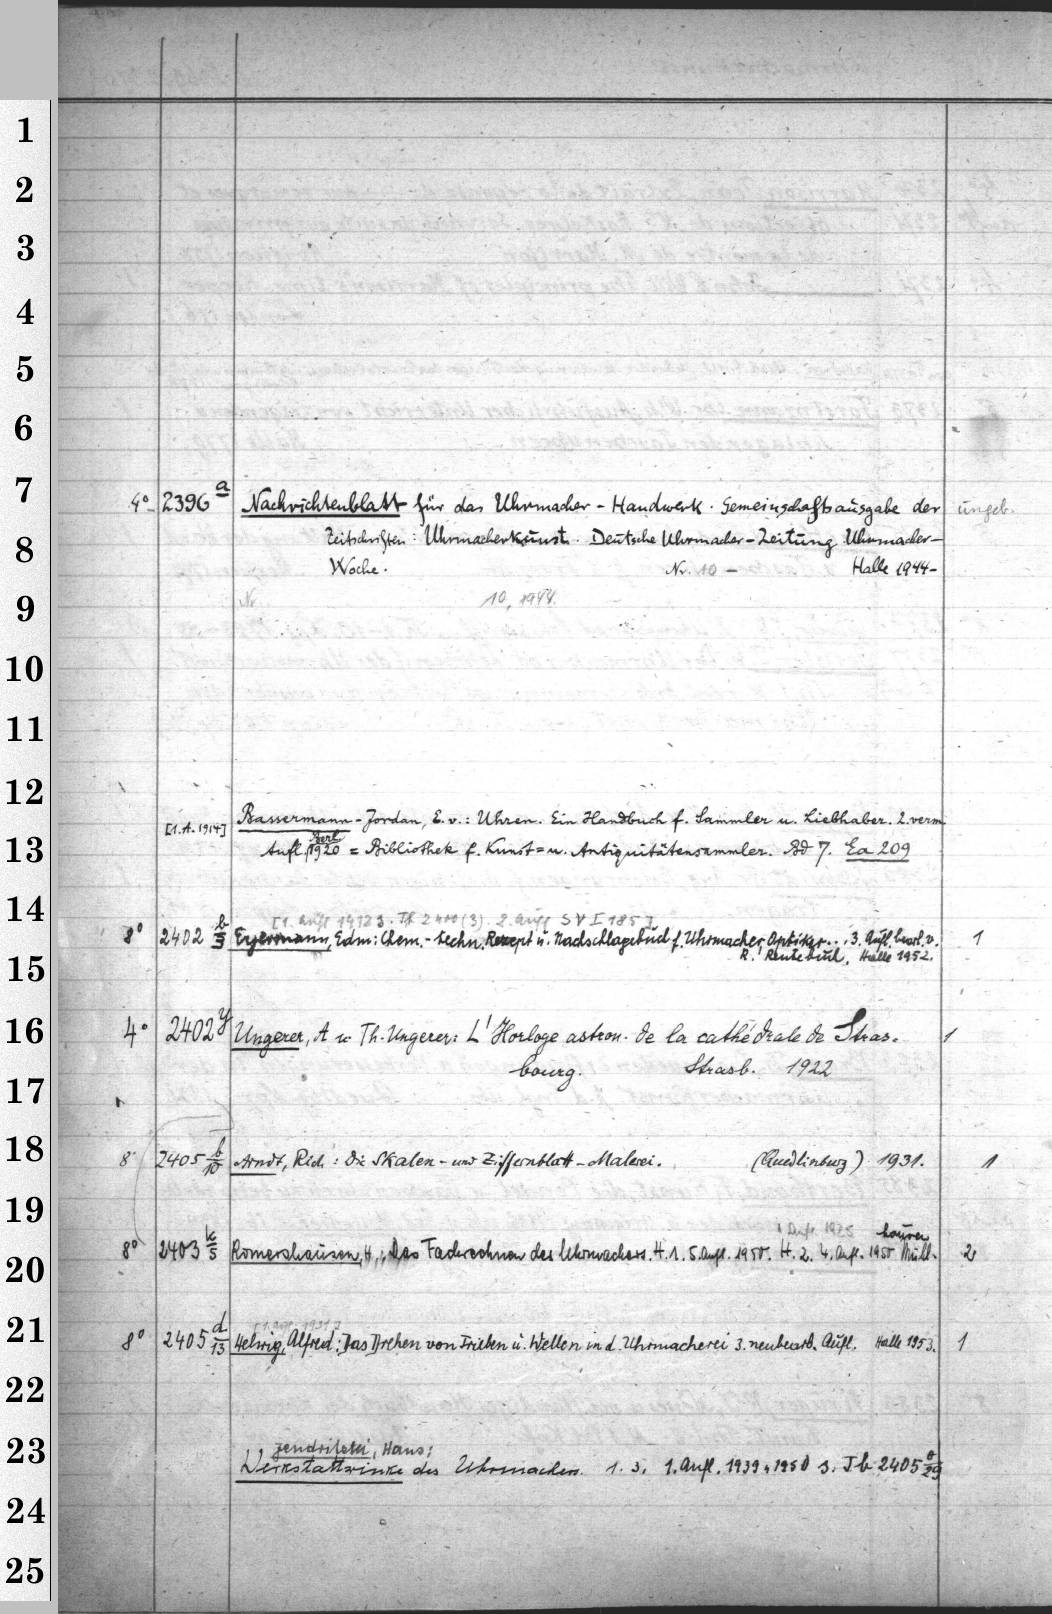 1
2
3
4
5
6
7
4° 2396 a Nachrichtenblatt für das Uhrmacher-Handwerk. Gemeinschaftsausgabe der ungeb.
8
Zeitschriften: Uhrmacherkunst. Deutsche Uhrmacher-Zeitung Uhrmacher-
Woche. Nr. 10 - Halle 1944-
9
Nr. 10, 1944.
10
11
12
[1.A. 1914] Bassermann-Jordan, E. v.: Uhren. Ein Handbuch f. Sammler u. Liebhaber. 2. verm.
13
Aufl. Berl 1920 = Bibliothek f. Kunst= u. Antiquitätensammler. Bd 7. Ea 209
14
[1. Aufl 1912 Th 2400 (3). 2. Aufl SV I 185]
8° 2402 b/3 Eyermann, Edm: Chem.-techn. Rezept u. Nachschlagebuch f. Uhrmacher, Optiker... 3. Aufl. bearb. v. 1
15
R. Rentebuch. Halle 1952.
16
4° 2402 y Ungerer, A u. Th. Ungerer: L'Horloge astron. de la cathédrale de Stras- 1
bourg. Strasb. 1922
17
18
8° 2405 b/10 Arndt, Rich.: Die Skalen- und Zifferblatt-Malerei. (Quedlinburg) 1931. 1
19
1 Aufl 1925
20
8° 2403 k/5 Romershausen, H.: Das Fachrechnen des Uhrmachers. H. 1. 5. Aufl. 1950. H. 2. 4. Aufl. 1950 Müll- 2
hausen
21
[1. Aufl. 1931]
8° 2405 d/13 Helwig, Alfred: Das Drehen von Trieben u. Wellen in d. Uhrmacherei 3. neubearb. Aufl. Halle 1953. 1
22
23
Jendritzki, Hans:
Werkstattwinke des Uhrmachers. 1. 3. 1. Aufl. 1939, 1950 s. Tb 2405 o/29
24
25